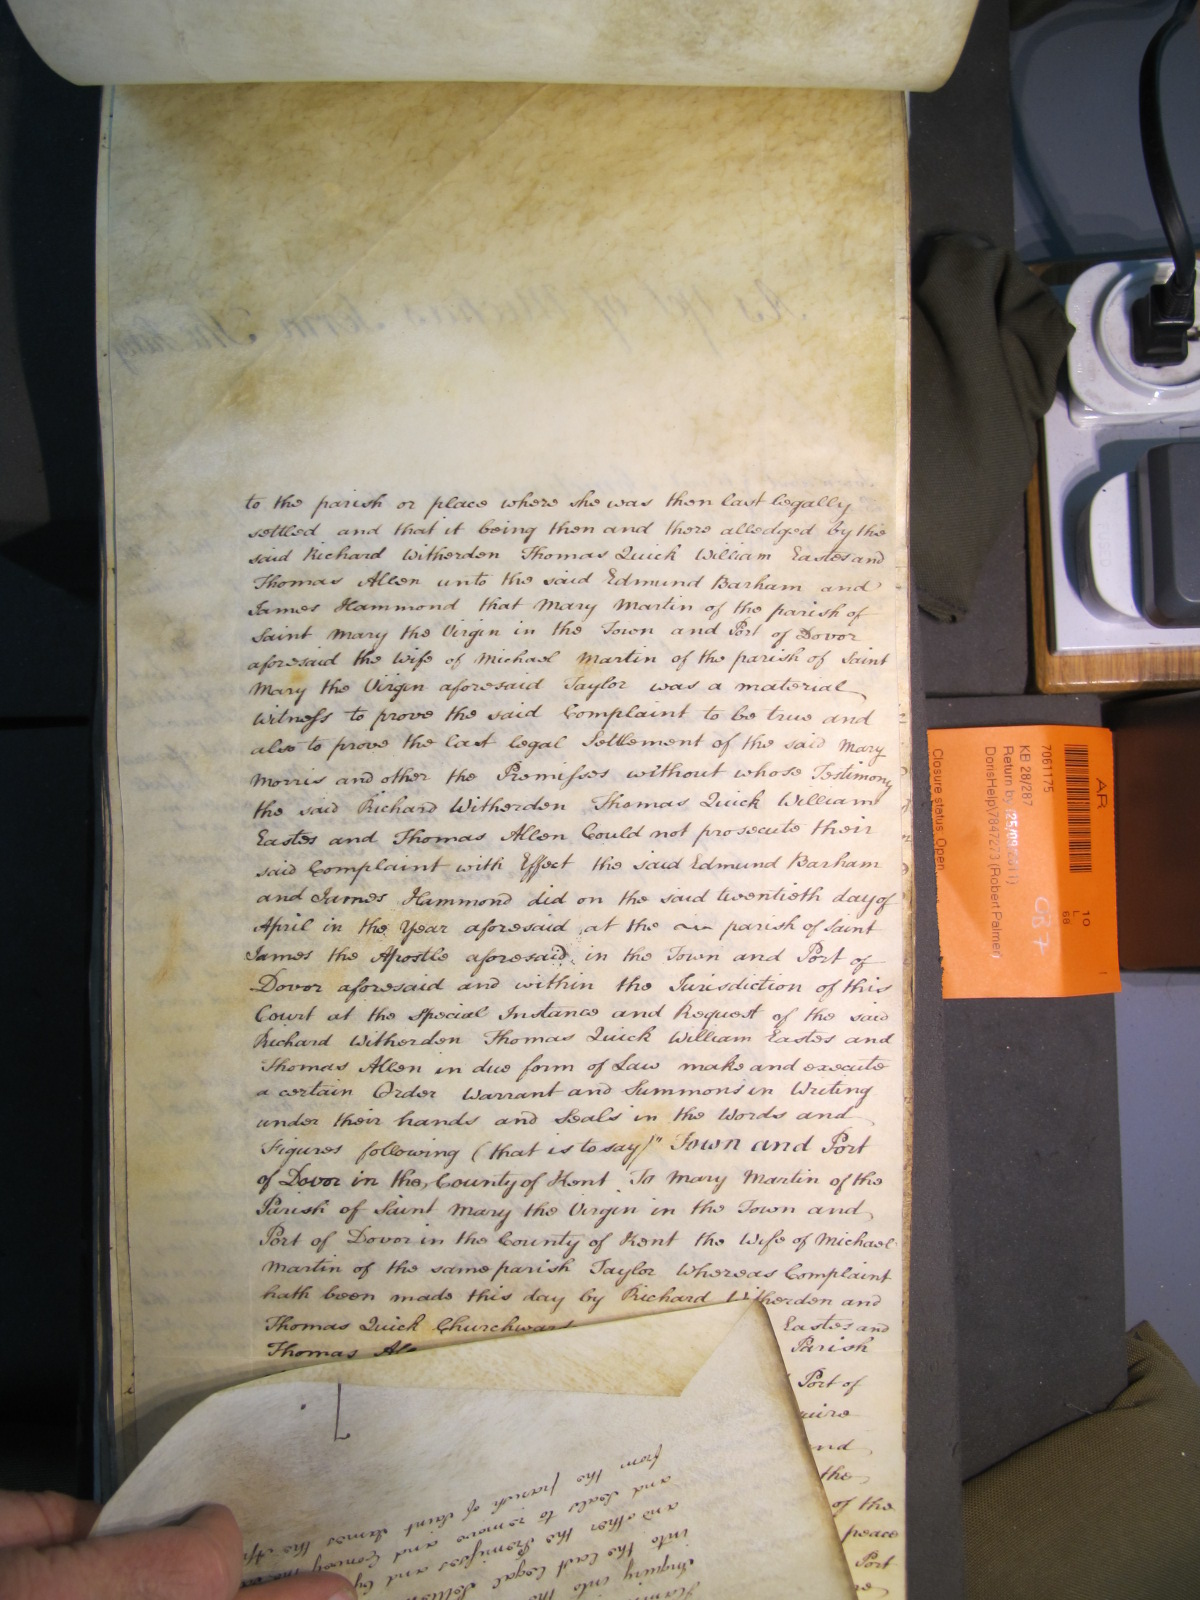 to the parish or place where she was then last legally
settled and that it being then and there alledged by the
said Richard Witherden Thomas Quick William Eastes and
Thomas Allen unto the said Edmund Barham and
James Hammond that Mary Martin of the parish of
Saint Mary the Virgin in the Town and Port of Dovor
aforesaid the wife of Michael Martin of the parish of Saint
Mary the Virgin aforesaid Taylor was a material
Witness to prove the said Complaint to be true and
also to prove the last legal Settlement of the said Mary
Morris and other the Premisses without whose Testimony
the said Richard Witherden Thomas Quick William
Eastes and Thomas Allen Could not prosecute their
said Complaint with Effect the said Edmund Barham
and James Hammond did on the said twentieth day of
April in the Year aforesaid at the parish of Saint
James the Apostle aforesaid in the Town and Port of
Dovor aforesaid and within the Jurisdiction of this
Court at the special Instance and Request of the said
Richard Witherden Thomas Quick William Eastes and
Thomas Allen in due form of Law make and execute
a certain Order Warrant and Summons in Writing
under their hands and Seals in the Words and
Figures following (that is to say)" Town and Port
of Dovor in the County of Kent To Mary Martin of the
Parish of Saint Mary the Virgin in the Town and
Port of Dovor in the County of Kent the Wife of Michael
Martin of the same parish Taylor Whereas Complaint
hath been made this day by Richard Witherden and
Thomas Quick Eastes and
Thomas Parish
Port of
the
of the
peace
Port
from the parish of Saint James the
and Seals to remove and Convey
and other the Premisses and
into the last legal
inquiry into the
AR
7061175
KB 28/287
Return by (25/09/2011)
DorisHelp\7847273 Robert Palmer
Closure status: Open
10
L
68